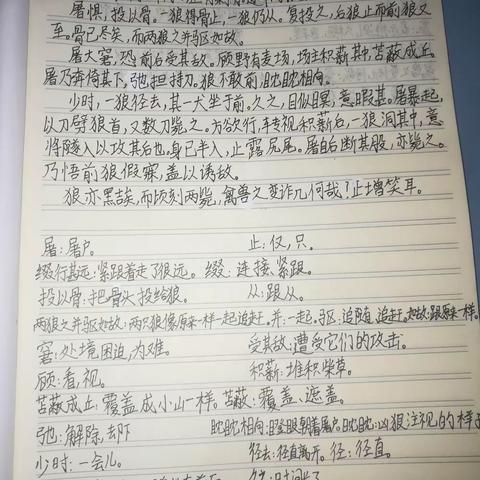 屠惧,投以骨。一狼得骨止,一狼仍从。复投之,后狼止而前狼又
至。骨已尽矣,而两狼之并驱如故。
屠大窘,恐前后受其敌。顾野有麦场,场主积薪其中,苫蔽成丘。
屠乃奔倚其下,弛担持刀。狼不敢前,眈眈相向。
少时,一狼径去,其一犬坐于前。久之,目似瞑,意暇甚。屠暴起,
以刀劈狼首,又数刀毙之。方欲行,转视积薪后,一狼洞其中,意
将隧入以攻其后也。身已半入,止露尻尾。屠自后断其股,亦毙之。
乃悟前狼假寐,盖以诱敌。
狼亦黠矣,而顷刻两毙,禽兽之变诈几何哉?止增笑耳。
屠:屠户。 止:仅,只。
缀行甚远:紧跟着走了很远。 缀:连接、紧跟。
投以骨:把骨头投给狼。 从:跟从。
两狼之并驱如故:两只狼像原来一样一起追赶。并:一起。驱:追随、追赶。如故:跟原来一样。
窘:处境困迫,为难。 受其敌:遭受它们的攻击。
顾:看,视。 积薪:堆积柴草。
苫蔽成丘:覆盖成小山一样。苫蔽:覆盖、遮盖。
弛:解除,去下 眈眈相向:瞪眼朝着屠户。眈眈:凶狠注视的样子
少时:一会儿。 径去:径直离开。径:径直。